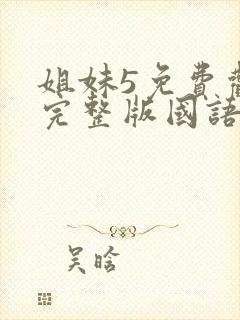 姐妹5免費
完整版國語
吴晗